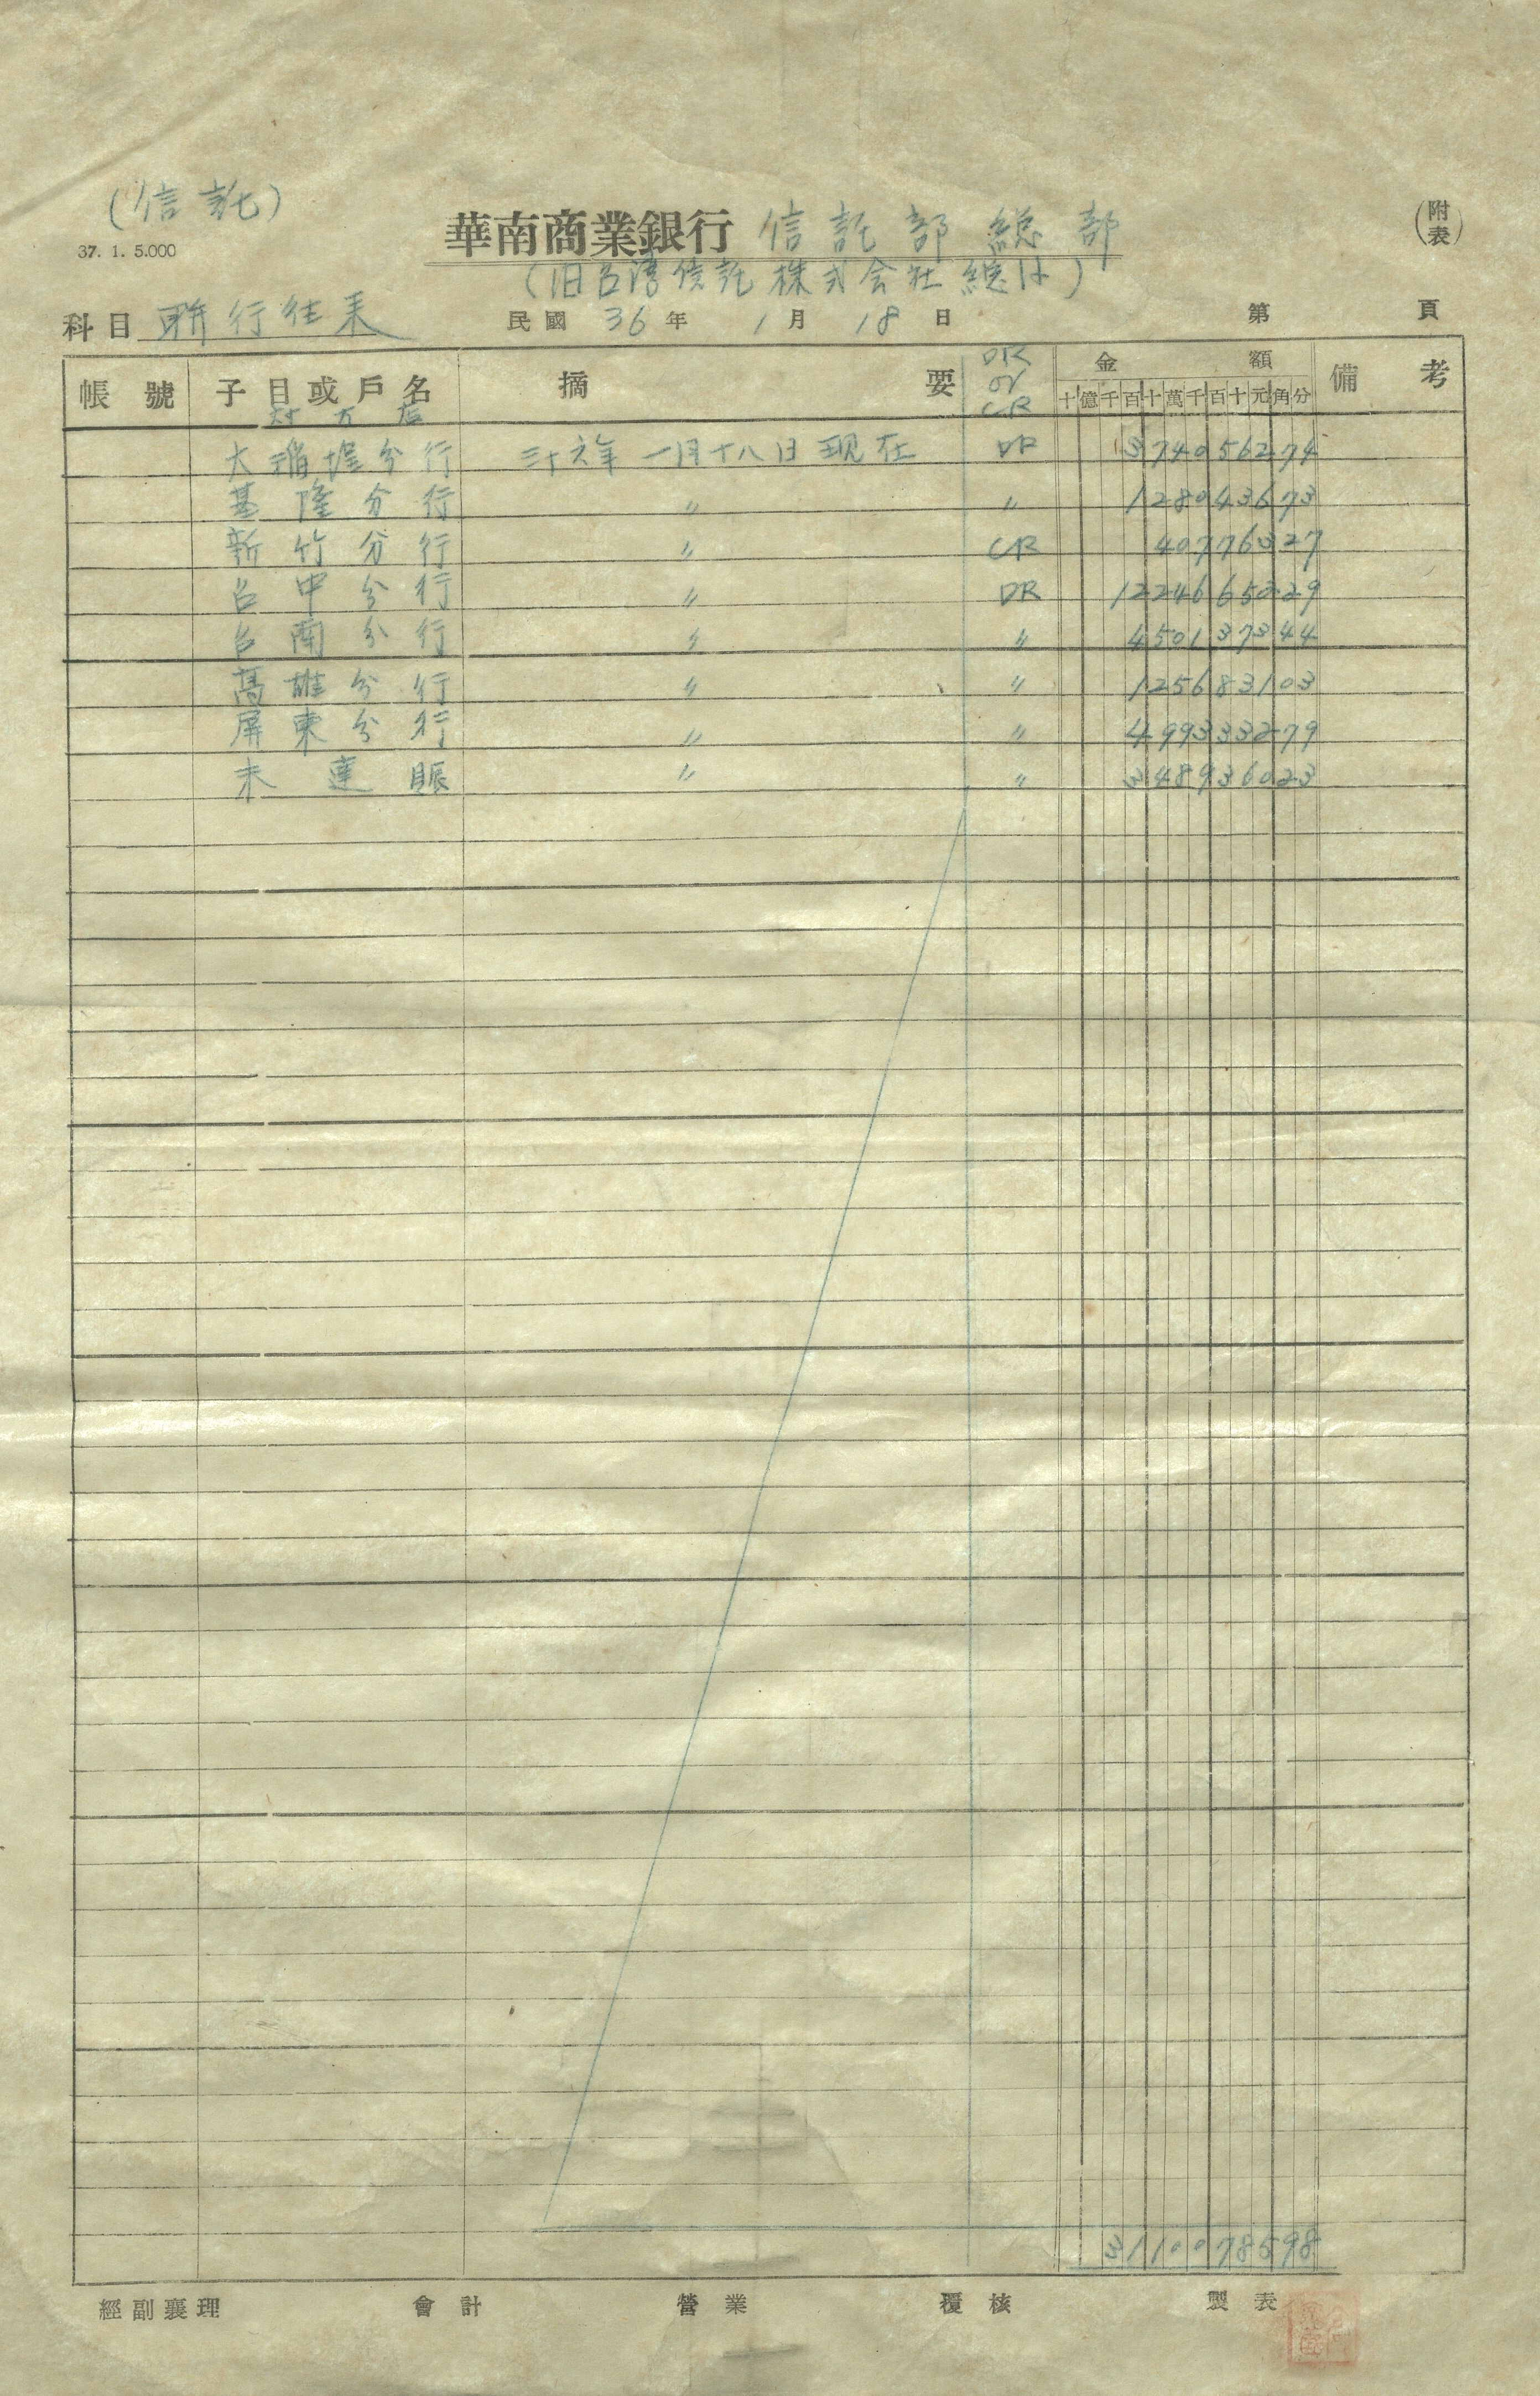 (信託)
37. 1. 5.000
華南商業銀行 信託部総部
(附表)
(旧台湾信託株式会社総社)
科目 聯行往来 民國 36 年 1 月 18 日 第 頁
帳號 子目或戶名 摘要 DR or CR 金額 備考
対方店 十億千百十萬千百十元角分
大稻埕分行 三十六年一月十八日現在 DR 374056274
基隆分行 〃 〃 128043673
新竹分行 〃 CR 40776327
台中分行 〃 DR 1224665229
台南分行 〃 〃 450137344
高雄分行 〃 〃 125683103
屏東分行 〃 〃 499333279
未達賬 〃 〃 348936023
3110078598
經副襄理 會計 營業 覆核 製表